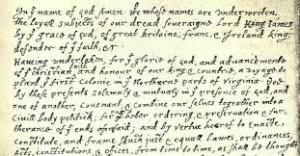 In yᵉ name of god Amen. We whose names are vnderwriten,
the loyall subjects of our dread soueraigne Lord King James
by yᵉ grace of god, of great Britaine, franc, & Ireland king,
defender of yᵉ faith, &c
Haueing vndertaken, for yᵉ glorie of god, and aduancements
of yᵉ christian faith and honour of our king & countrie, a voyage to
plant yᵉ first colonie in yᵉ Northerne parts of Virginia. Doe
by these presents solemnly & mutualy in yᵉ presence of god, and
one of another, couenant, & combine our selues togeather into a
ciuill body politick; for our better ordering, & preseruation & fur-
therance of yᵉ ends aforesaid; and by vertue hearof to enacte,
constitute, and frame shuch just & equall Lawes, ordinances,
Acts, constitutions, & offices, from time to time, as shall be thought